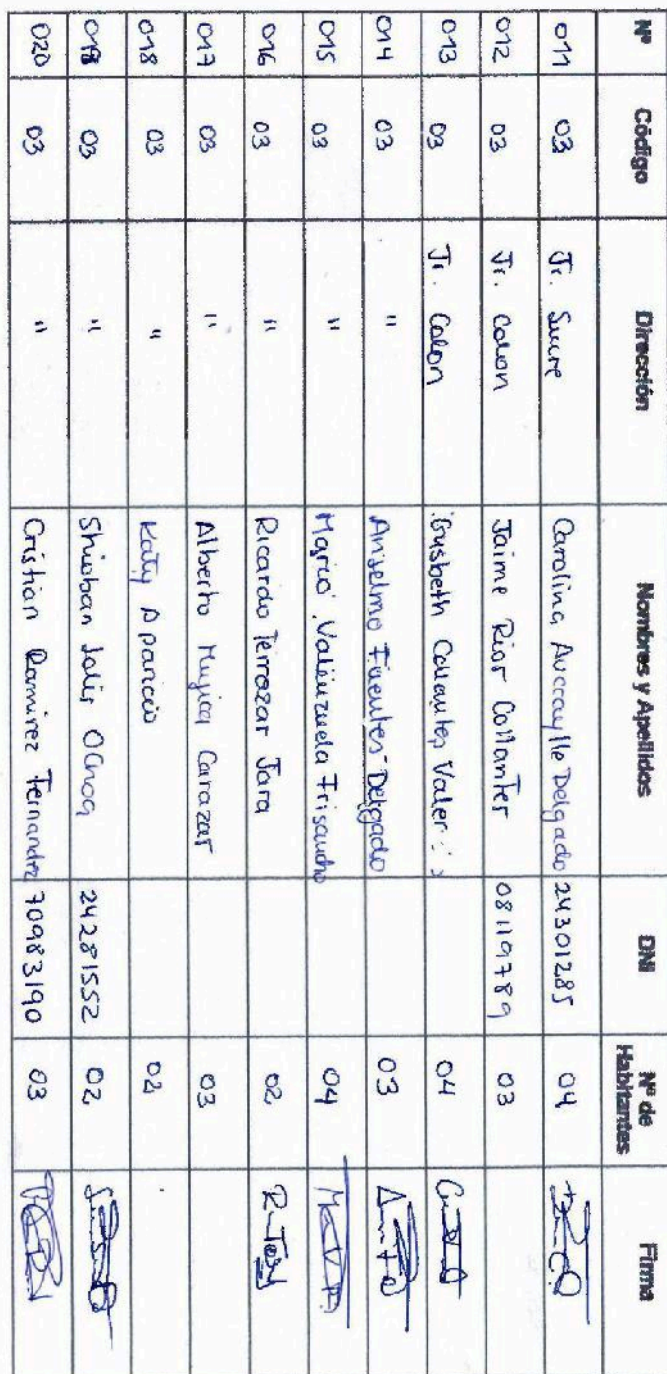 Nº Código Dirección Nombres y Apellidos DNI Nº de Habitantes Firma
011 03 Jr. Sucre Carolina Auccaylle Delgado 24301285 04
012 03 Jr. Colon Jaime Rior Collanter 08119789 03
013 03 Jr. Colon Valer 04
014 03 " Anselmo Fuentes Delgado 03
015 03 " Mario Valenzuela Frisancho 04
016 03 " Ricardo Terrazar Jara 02
017 03 " Alberto Mujica Carazar 03
018 03 " Katy Aparicio 02
019 03 " Shioban Solis Ochoa 24281552 02
020 03 " Cristian Ramirez Fernandez 70983190 03